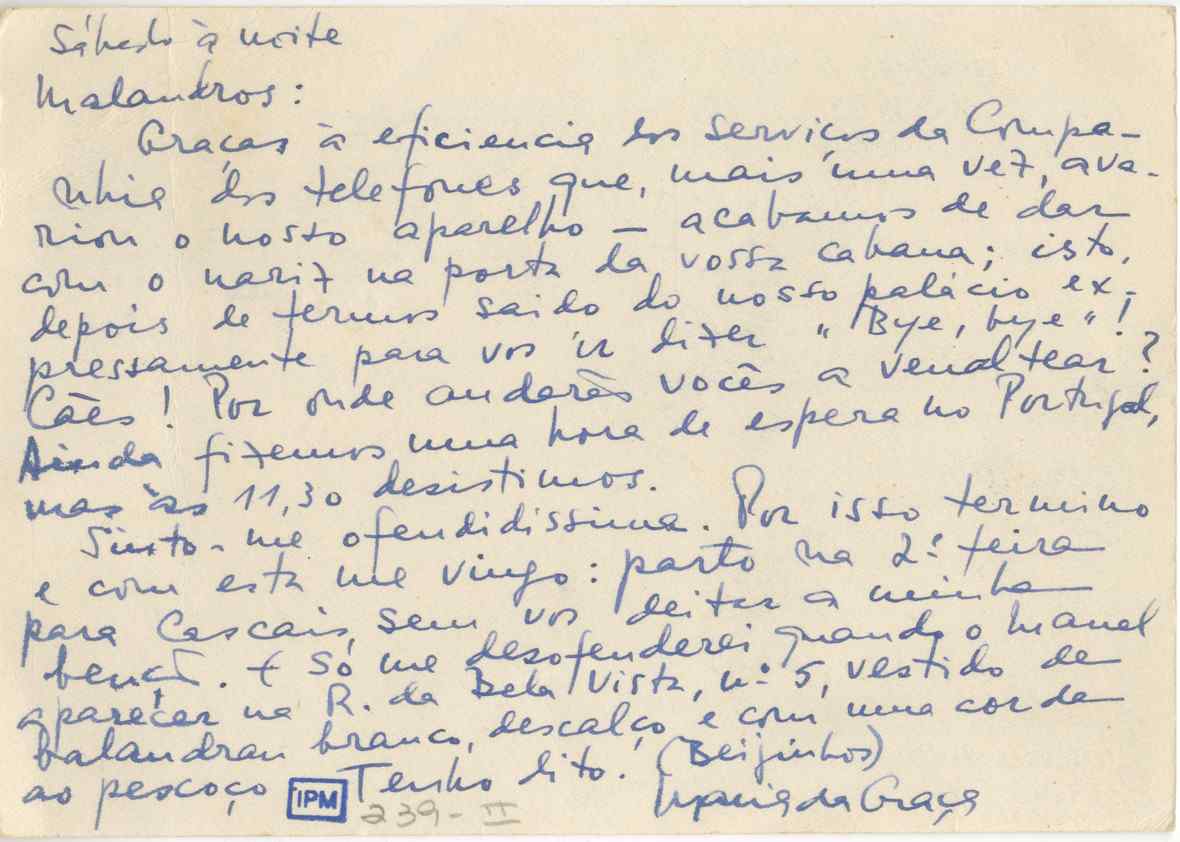 Sábado à noite
Malandros:
Graças à eficiencia dos serviços da Compa-
nhia dos telefones que, mais uma vez, ava-
riou o nosso aparelho — acabamos de dar
com o nariz na porta da vossa cabana; isto,
depois de termos saido do nosso palácio ex-
pressamente para vos ir dizer "Bye, bye"!
Cães! Por onde andarão vocês a venaltear?
Ainda fizemos uma hora de espera no Portugal,
mas às 11,30 desistimos.
Sinto-me ofendidissima. Por isso termino
e com esta me vingo: parto na 2ª feira
para Cascais, sem vos deitar a minha
benção. + Só me desofenderei quando o Manel
aparecer na R. da Bela Vista, nº 5, vestido de
balandrau branco, descalço e com uma corda
ao pescoço Tenho dito. (Beijinhos)
Maria da Graça
IPM
239-II